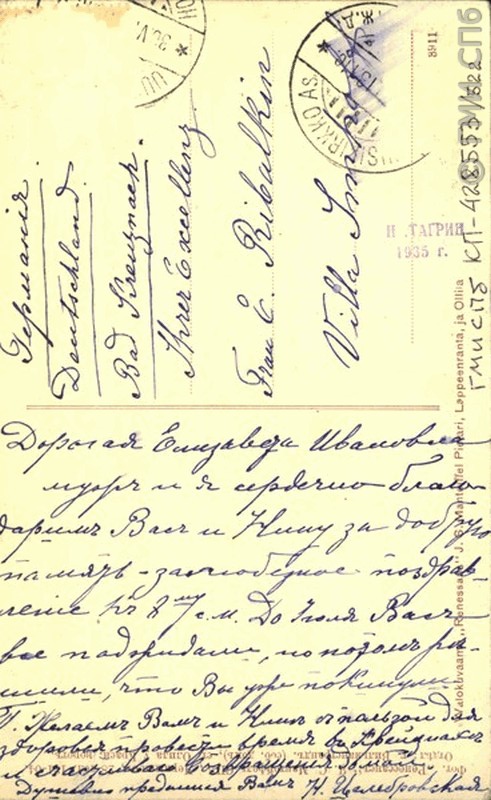 Германія.
Deutschland
Bad Kreuznach.
Ihrer Excellenz
Frau E. Ribalkin
Villa
8911
ТАГРИН
1935 г.
ГМИСПб КП-428553/
© ГМИ СПб
Дорогая Елизавета Ивановна
мужъ и я сердечно благо-
даримъ Васъ и Нину за добрую
память - за любезное поздрав-
леніе къ с.м. До Іюля Васъ
все поджидали, но потомъ рѣ-
шили, что Вы уже покинули
П. Желаемъ Вамъ и Нинѣ съ пользой для
здоровья провести время въ
и счастливаго возвращенія домой.
Душевно преданная Вамъ Н.
Valokuvaamo "Renessans" J. S. Manteuffel Pietari, Lappeenranta, ja Ollila